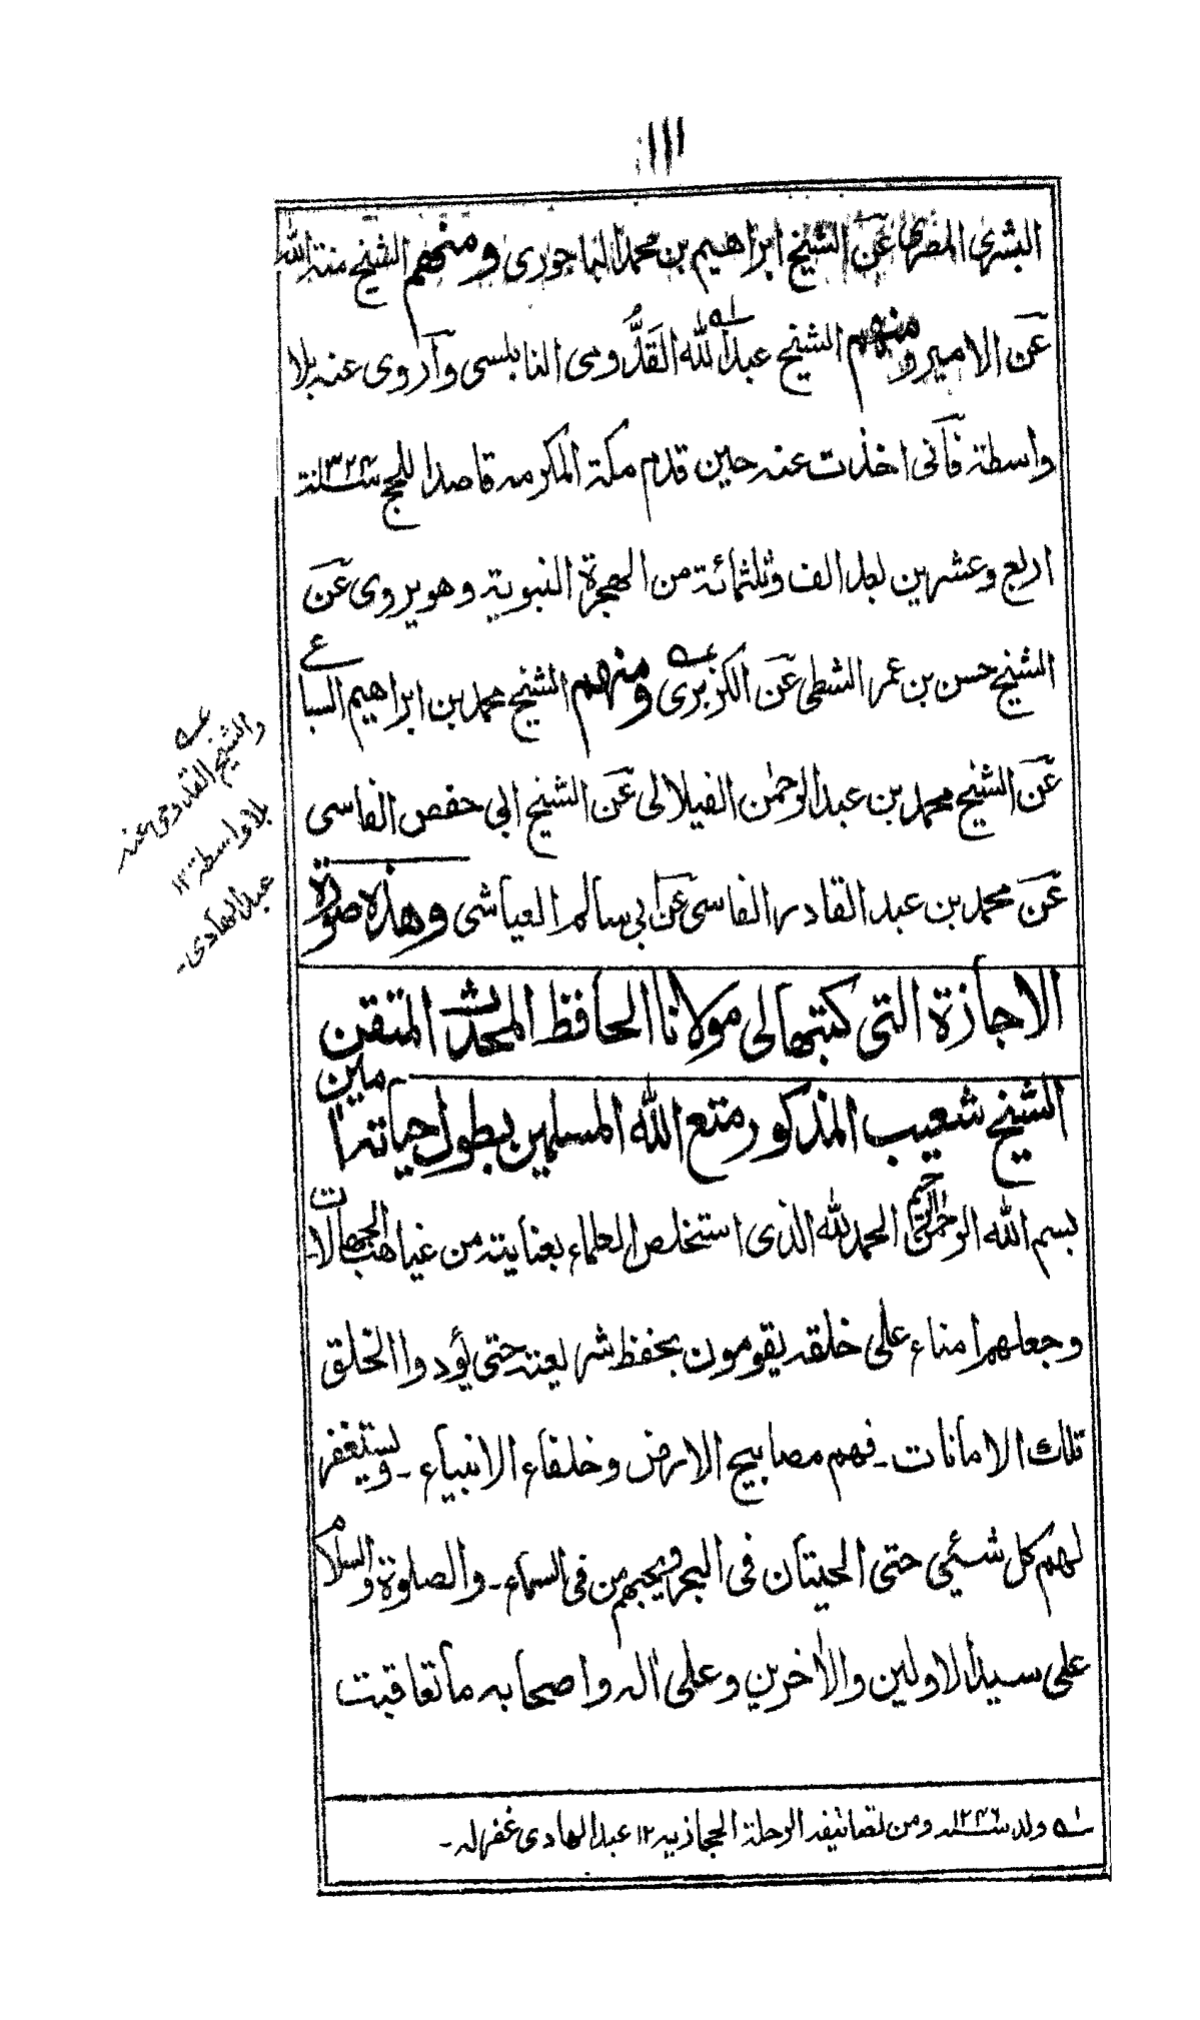 ١١١
البشرى المصرى عن الشيخ ابراهيم بن محمد الباجورى ومنهم الشيخ منة الله
عن الامير ومنهم الشيخ عبد الله القَدُّومى النابلسى وآروى عنه بلا
واسطة فآنى اخذت عنه حين قدم مكة المكرمه قاصدا للحج سنة ١٣٢٤
اربع وعشرين بعد الف وثلثمائة من الهجرة النبوية وهو يروى عن
الشيخ حسن بن عمر الشطى عن الكزبرى ومنهم الشيخ محمد بن ابراهيم السباعى
عن الشيخ محمد بن عبد الرحمٰن الفيلالى عن الشيخ ابى حفص الفاسى
عن محمد بن عبد القادر الفاسى عن ابى سالم العياشى وهذه صورة
الاجازة التى كتبها لى مولانا الحافظ المحدث المتقن
الشيخ شعيب المذكور متع الله المسلمين بطول حياته اٰمين
بسم الله الرحمٰن الرحيم الحمد لله الذى استخلص العلماء بعنايته من غياهب الجهالات
وجعلهم امناء على خلقه يقومون بحفظ شريعته حتى يؤدوا الخلق
تلك الامانات ـ فهم مصابيح الارض وخلفاء الانبياء ـ ويستغفر
لهم كل شئي حتى الحيتان فى البحر ويحبهم من فى السماء ـ والصلوة والسلام
على سيد الاولين والاٰخرين وعلى اٰله واصحابه ما تعاقبت
والشيخ القدومى عنه
بلا واسطة ١٢
عبد الهادى ـ
ولد سنه ١٢٤٦ ومن تصانيفه الرحلة الحجازيه ١٢ عبد الهادى غفر له ـ